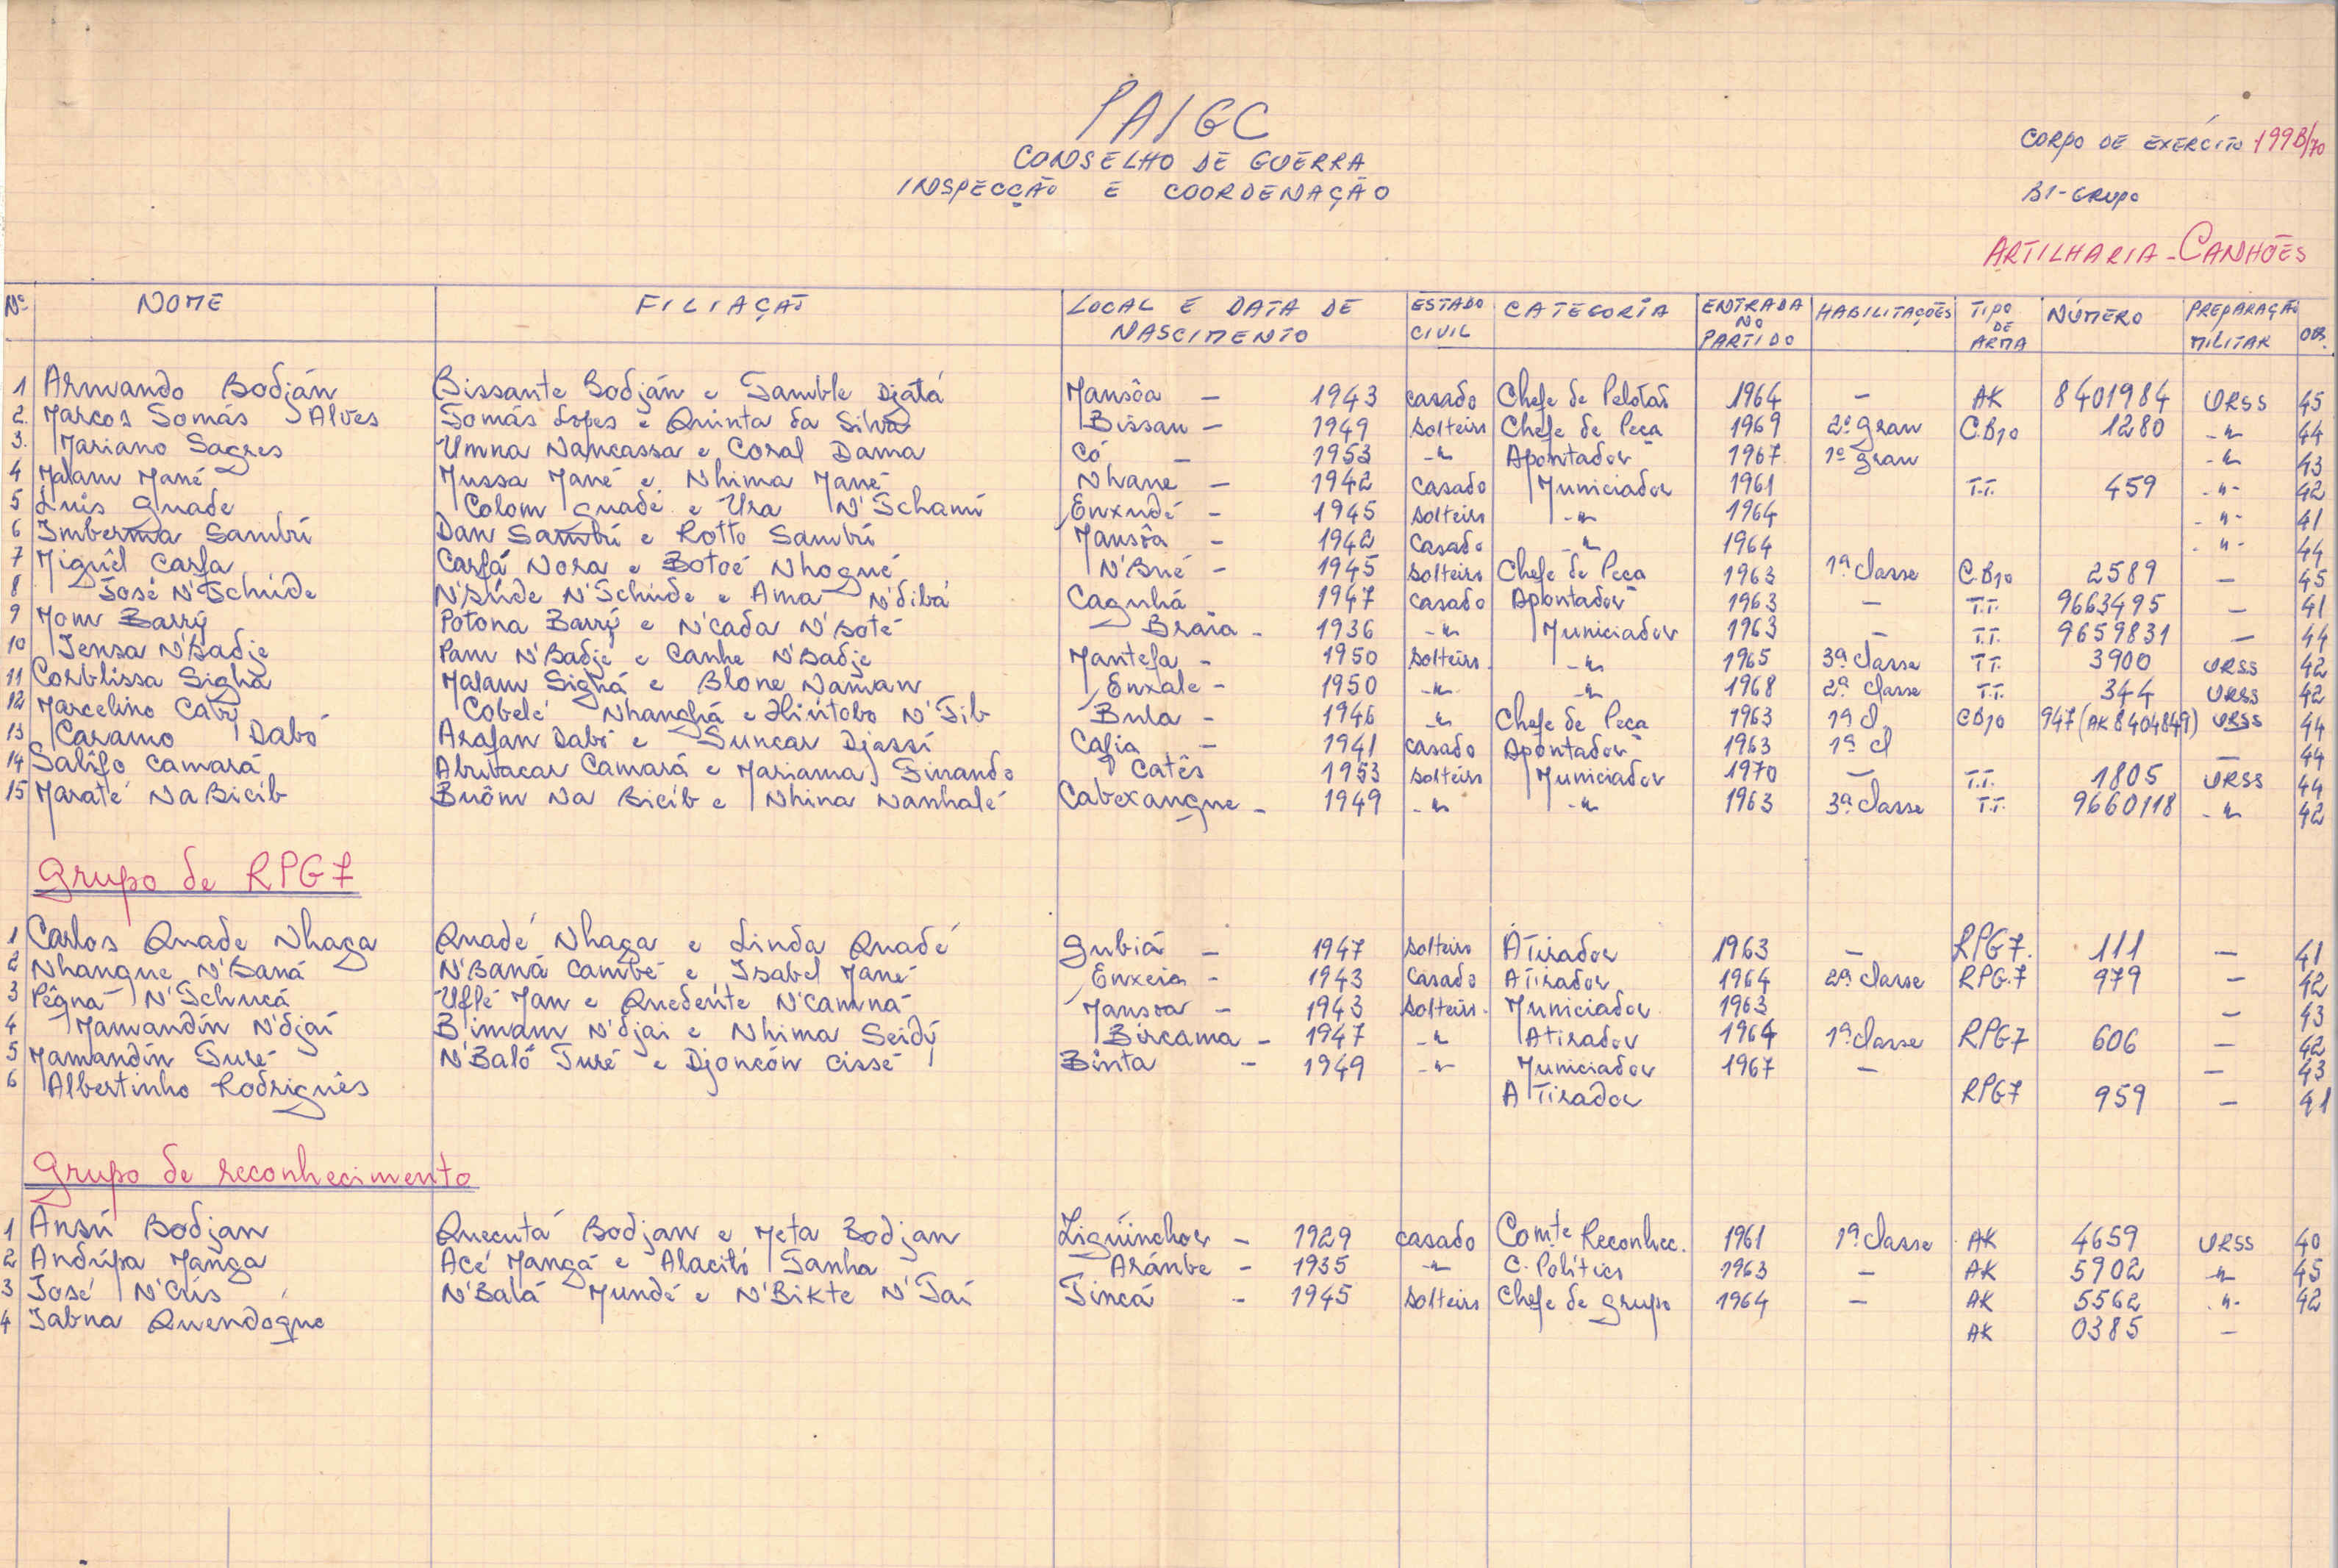 PAIGC
CONSELHO DE GUERRA
INSPECÇÃO E COORDENAÇÃO
CORPO DE EXÉRCITO 199B/70
BI-GRUPO
ARTILHARIA - CANHÕES
Nº NOME FILIAÇÃO LOCAL E DATA DE NASCIMENTO ESTADO CIVIL CATEGORIA ENTRADA NO PARTIDO HABILITAÇÕES TIPO DE ARMA NÚMERO PREPARAÇÃO MILITAR OBS.
1 Armando Bodján Bissante Bodján e Tamble Djatá Mansôa - 1943 casado Chefe de Pelotão 1964 - AK 8401984 URSS 45
2. Marcos Tomás Alves Tomás Lopes e Quinta da Silva Bissau - 1949 solteiro Chefe de Peça 1969 2º grau C.B10 1280 -"- 44
3. Mariano Sagres Umna Nancassa e Coral Dama Có - 1953 -"- Apontador 1967 1º grau -"- 43
4 Malam Mané Mussa Mané e Nhima Mané Nhane - 1942 casado Municiador 1961 T.T. 459 -"- 42
5 Luis Quade Colom Quadé e Ura N'Schami Enxudé - 1945 solteiro -"- 1964 -"- 41
6 Imberma Sambú Dan Sambú e Rotto Sambú Mansôa - 1942 casado -"- 1964 -"- 44
7 Miguêl Carfa Carfá Nora e Botoé Nhogué N'Bué - 1945 solteiro Chefe de Peça 1963 1ª classe C.B10 2589 - 45
8 José N'Schúde N'Búde N'Schúde e Ama N'dibá Caguhá 1947 casado Apontador 1963 - T.T. 9663495 - 41
9 Mom Barry Potona Barry e N'cada N'Boté Braia - 1936 -"- Municiador 1963 - T.T. 9659831 - 44
10 Tensa N'Badje Pam N'Badje e Canhe N'Badje Mantefa - 1950 solteiro -"- 1965 3ª classe T.T. 3900 URSS 42
11 Corblissa Sighá Malam Sighá e Blone Naman Enxale - 1950 -"- -"- 1968 2ª classe T.T. 344 URSS 42
12 Marcelino Caby Cobelé Nhanghá e Hiritobo N'Tib Bula - 1946 -"- Chefe de Peça 1963 1ª cl CB10 947 (AK 8404849) URSS 44
13 Caramo Dabó Arafan Dabó e Suncar Djassi Cafia - 1941 casado Apontador 1963 1ª cl - 44
14 Salifo Camará Abubacar Camará e Mariama Sinando Catês 1953 solteiro Municiador 1970 - T.T. 1805 URSS 44
15 Maraté Na Bicib Buôm Na Bicib e Nhina Nanhalé Cabexangue - 1949 -"- -"- 1963 3ª classe T.T. 9660118 -"- 42
Grupo de RPG7
1 Carlos Quade Nhaga Quadé Nhaga e Linda Quadé Gubiá - 1947 solteiro Atirador 1963 - RPG7. 111 - 41
2 Nhangue N'Baná N'Baná Cambé e Isabel Mané Enxeia - 1943 casado Atirador 1964 2ª classe RPG.7 979 - 42
3 Pêgna N'Schucá Uflé Man e Quedente N'Camna Mansoa - 1943 solteiro Municiador 1963 - 43
4 Mamandin N'djai B'imam N'djai e Nhima Seidy Bircama - 1947 -"- Atirador 1964 1ª classe RPG7 606 - 42
5 Mamandin Turé N'Baló Turé e Djoncón Cissé Binta - 1949 -"- Municiador 1967 - - 43
6 Albertinho Rodriguês Atirador RPG7 959 - 41
Grupo de reconhecimento
1 Ansú Bodjan Quecutá Bodjan e Meta Bodjan Ziguinchor - 1929 casado Comte Reconhec. 1961 1ª classe AK 4659 URSS 40
2 Andúpa Manga Acé Mangá e Alacitó Tanha Aránbe - 1935 -"- C. Politico 1963 - AK 5902 -"- 45
3 José N'Cris N'Balá Mundé e N'Bikte N'Tai Tincá - 1945 solteiro Chefe de grupo 1964 - AK 5562 -"- 42
4 Tabna Quendogue AK 0385 -